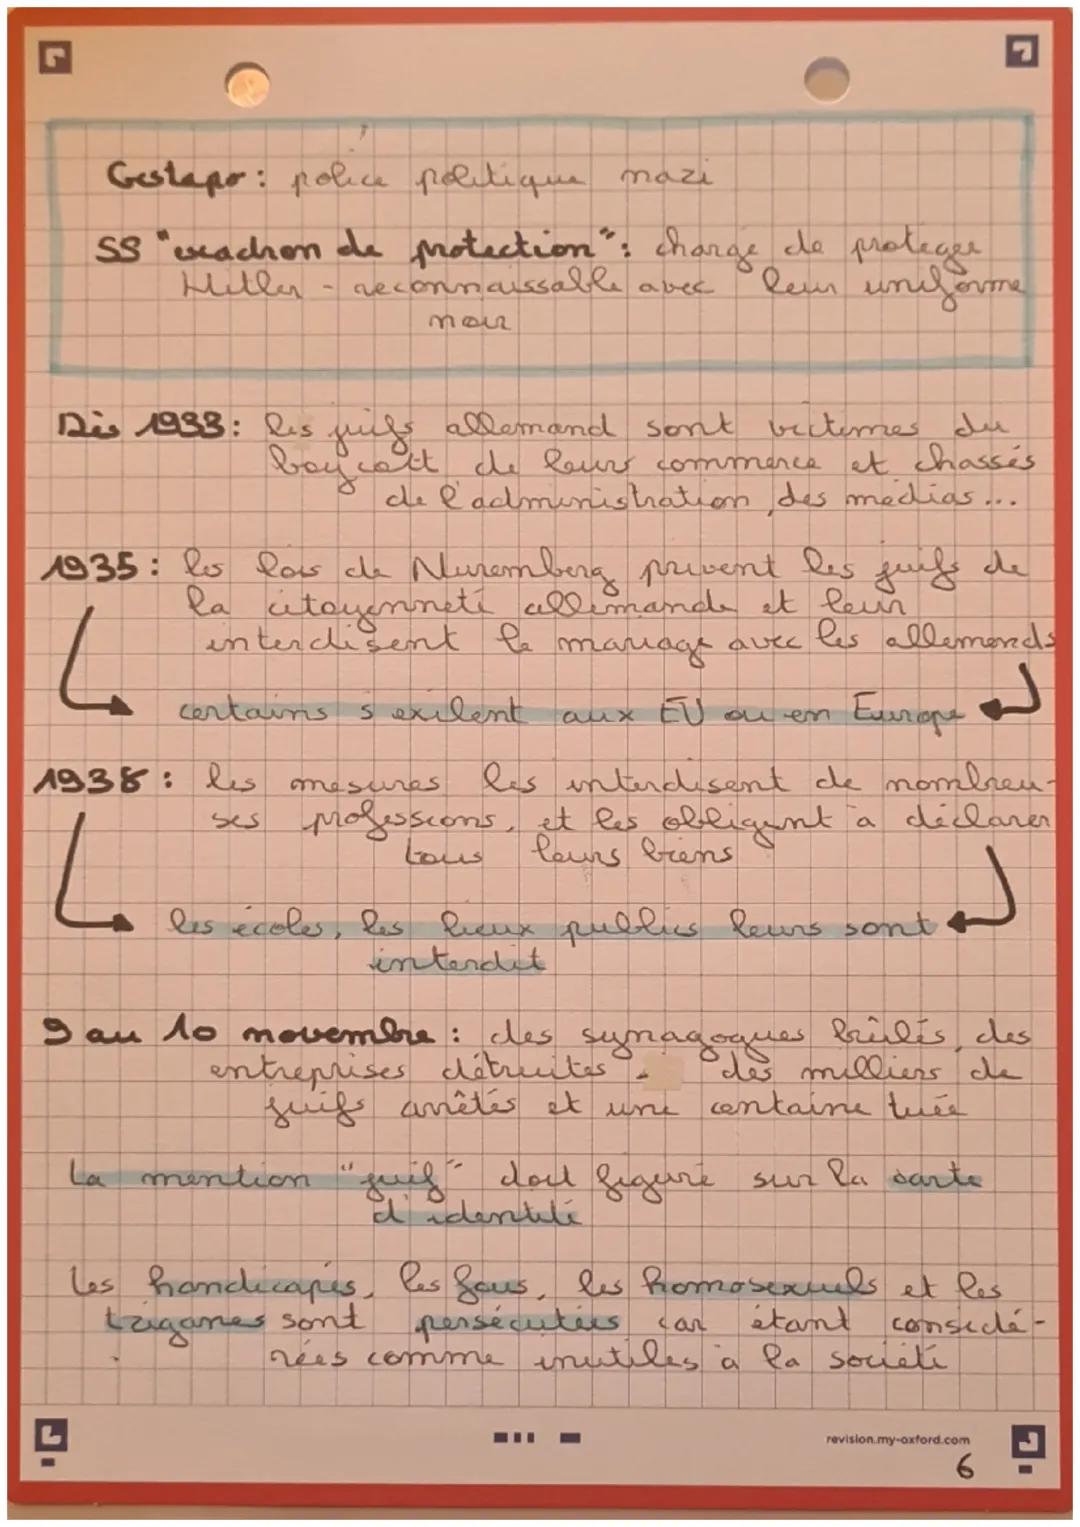 Gestapo : police politique nazi
SS "escadron de protection" : chargé de protéger
Hitler - reconnaissable avec leur uniforme
noir
Dès 1933 : les juifs allemand sont victimes du
boycott de leurs commerce et chassés
de l'administration, des médias ...
1935 : les lois de Nuremberg privent les juifs de
la citoyenneté allemande et leur
interdisent le mariage avec les allemands
certains s'exilent aux EU ou en Europe
1938 : les mesures les interdisent de nombreu-
ses professions, et les obligent à déclarer
tous leurs biens
les écoles, les lieux publics leurs sont
interdit
9 au 10 novembre : des synagogues brûlés, des
entreprises détruites. des milliers de
juifs arrêtés et une centaine tuée
La mention "juif" doit figuré sur la carte
d'identité
Les handicapés, les fous, les homosexuels et les
tziganes sont persécutées car étant considé-
rées comme inutiles à la société
revision.my-oxford.com
6